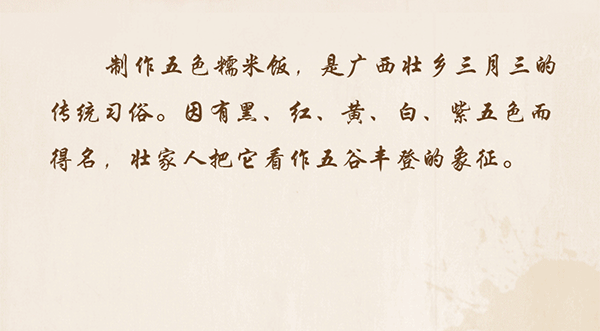 制作五色糯米饭，是广西壮乡三月三的
传统习俗。因有黑、红、黄、白、紫五色而
得名，壮家人把它看作五谷丰登的象征。